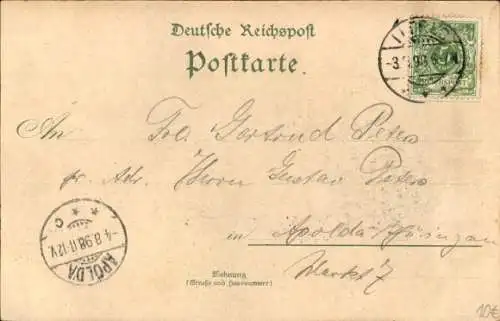 Deutsche Reichspost
Postkarte.
-3.8.98
An Frl. Gertrud Peters
pr. Adr. Herrn Gustav Peters
in Apolda Thüringen
Markt 7
-4.8.98 11-12V.
C
APOLDA
Wohnung
(Straße und Hausnummer)
10€